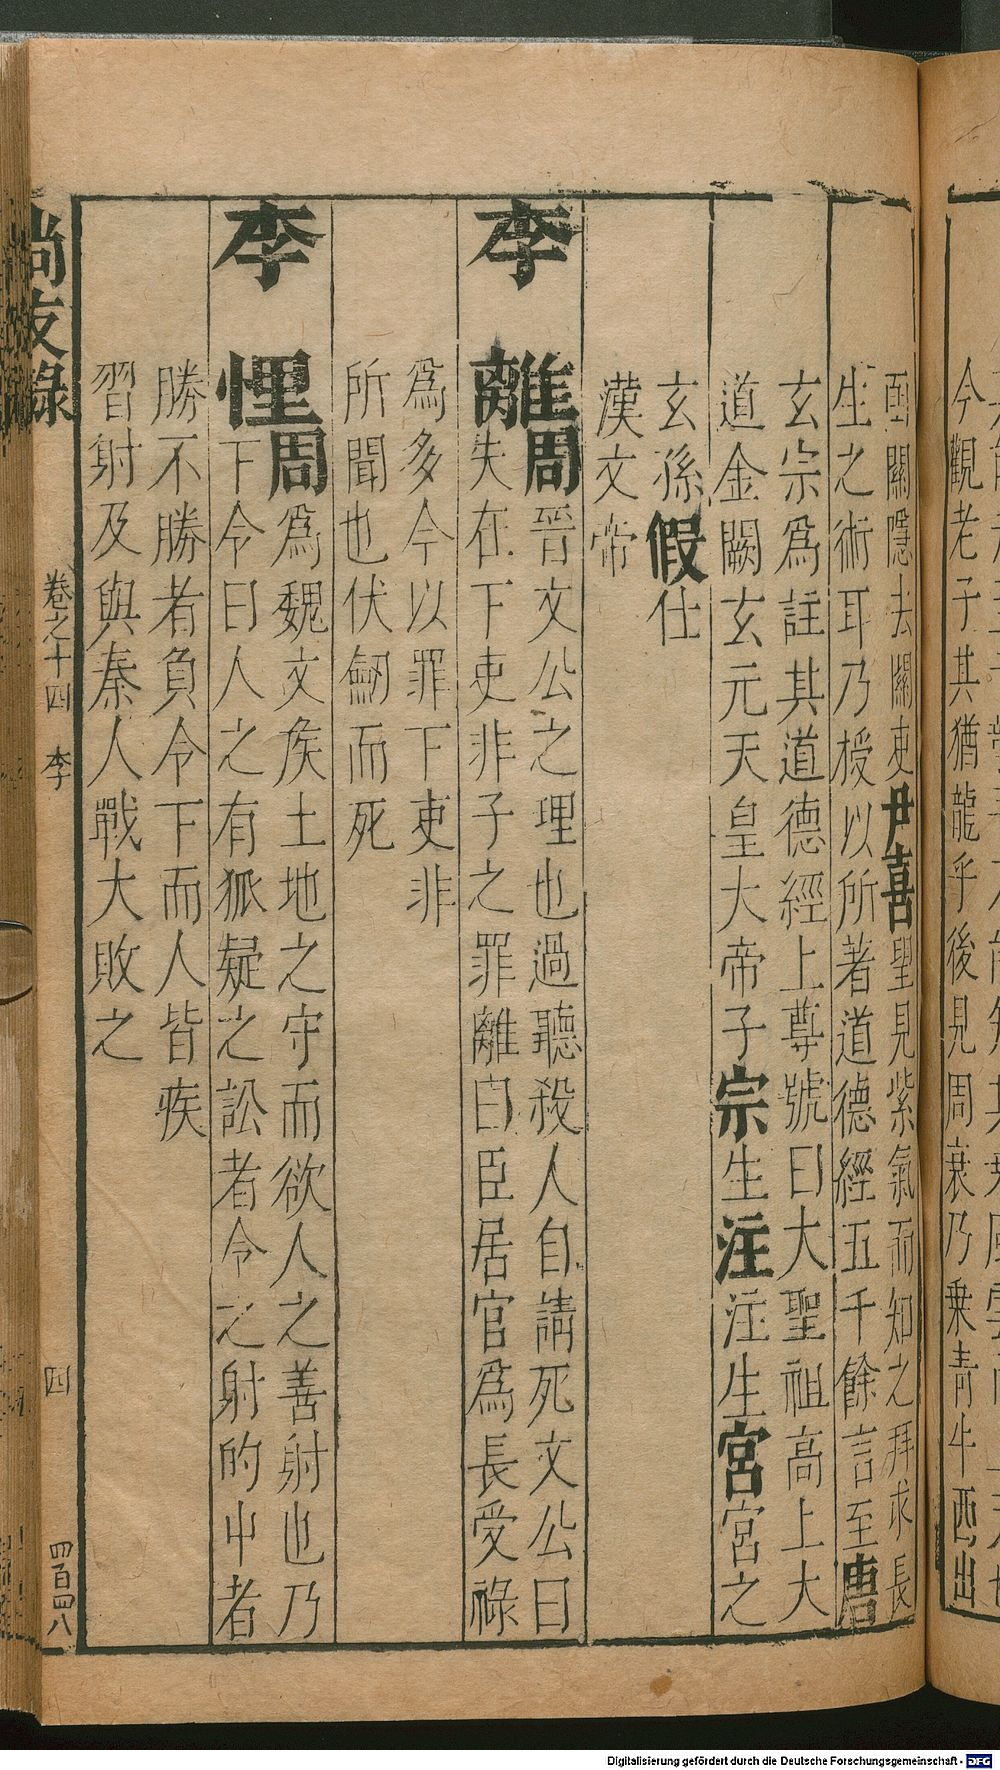 今觀老子其猶龍乎後見周衰乃乗青牛西出
函關隱去關吏尹喜望見紫氣而知之拜求長
生之術耳乃授以所著道德經五千餘言至唐
玄宗爲註其道德經上尊號曰大聖祖高上大
道金闕玄元天皇大帝子宗生注注生宮宮之
玄孫假仕
漢文帝
李離周晉文公之理也過聽殺人自請死文公曰
失在下吏非子之罪離曰臣居官爲長受祿
爲多今以罪下吏非
所聞也伏劒而死
李悝周爲魏文侯土地之守而欲人之善射也乃
下令曰人之有狐疑之訟者令之射的中者
勝不勝者負令下而人皆疾
習射及與秦人戰大敗之
尚友錄
卷之十四 李
四
四百四八
Digitalisierung gefördert durch die Deutsche Forschungsgemeinschaft - DFG